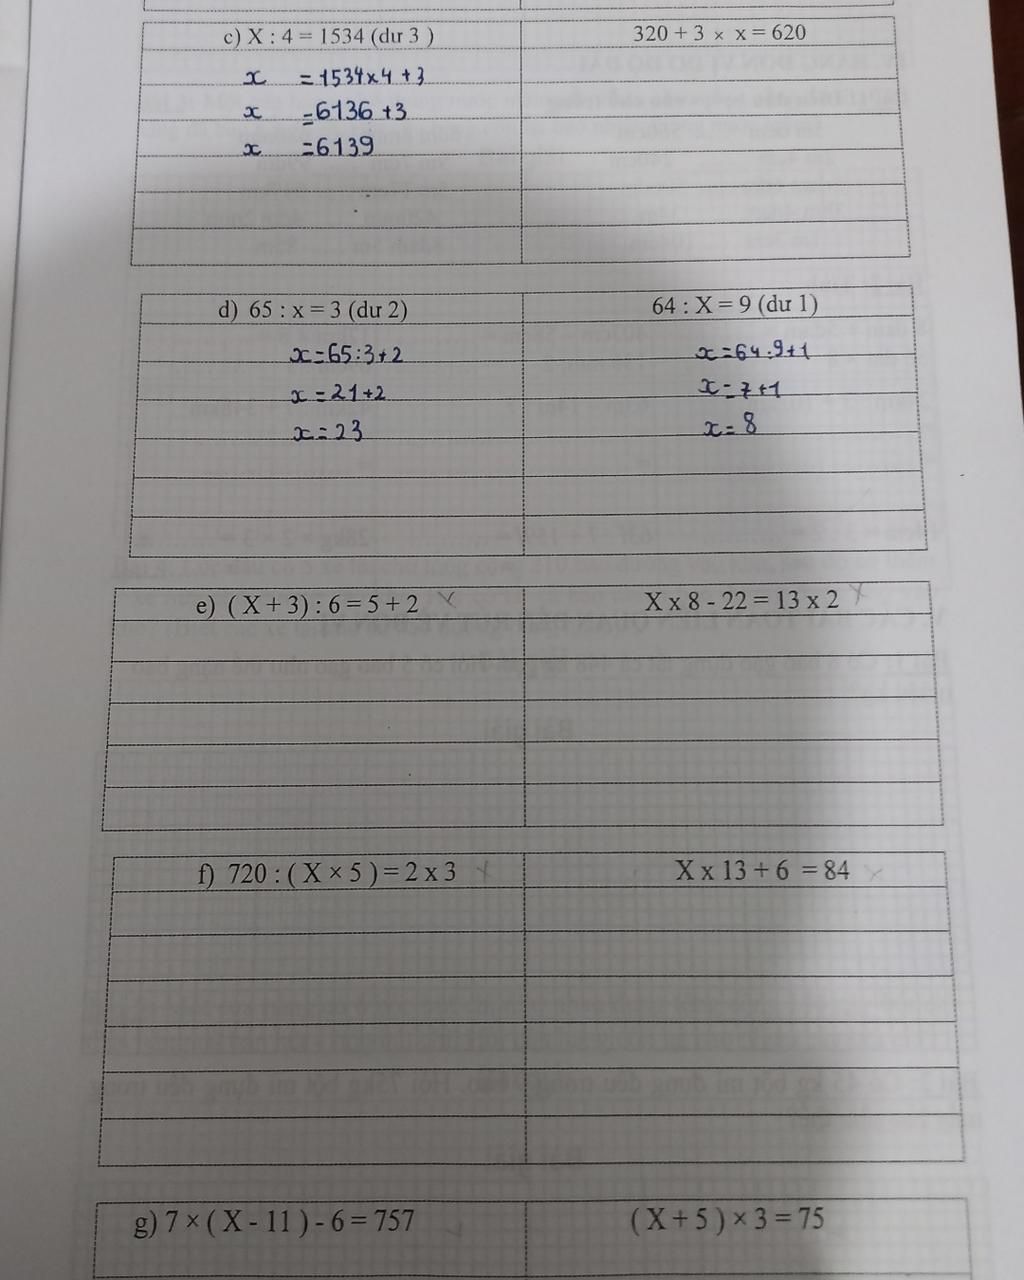 c) X : 4 = 1534 (dư 3 )
x = 1534 x 4 + 3
x = 6136 + 3
x = 6139
320 + 3 × x = 620
d) 65 : x = 3 (dư 2)
x = 65 : 3 + 2
x = 21 + 2
x = 23
64 : X = 9 (dư 1)
x = 64 : 9 + 1
x = 7 + 1
x = 8
e) ( X + 3) : 6 = 5 + 2
X x 8 - 22 = 13 x 2
f) 720 : ( X × 5 ) = 2 x 3
X x 13 + 6 = 84
g) 7 × ( X - 11 ) - 6 = 757
( X + 5 ) × 3 = 75